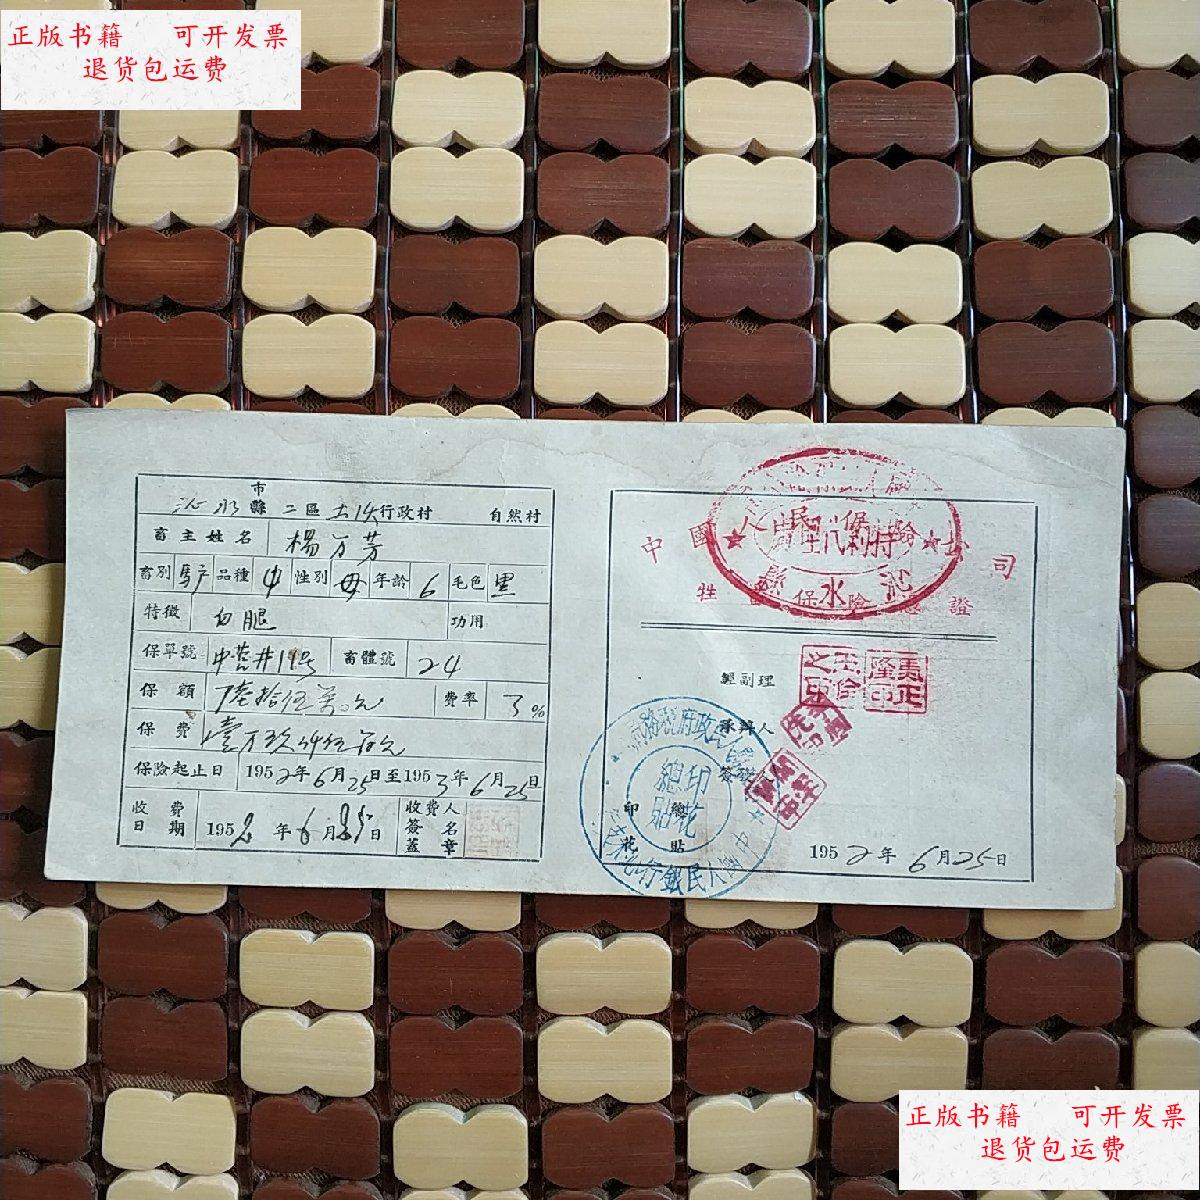 正版书籍 可开发票
退货包运费
市
沁水縣 二區 土沃行政村 自然村
畜主姓名 楊万芳
畜別 驴 品種 中 性別 母 年齡 6 毛色 黑
特徵 白腿 功用
保單號 中营井19号 畜體號 24
保額 陸拾伍萬元 費率 3%
保費 壹万玖仟伍百元
保險起止日 1952年6月25日至1953年6月25日
收費日期 1952年6月25日 收費人簽名蓋章
中國人民保險公司
牲畜保險證
沁水縣
經副理
承辦人
印花總貼
總印花貼
中國人民銀行
1952年6月25日
正版书籍 可开发票
退货包运费